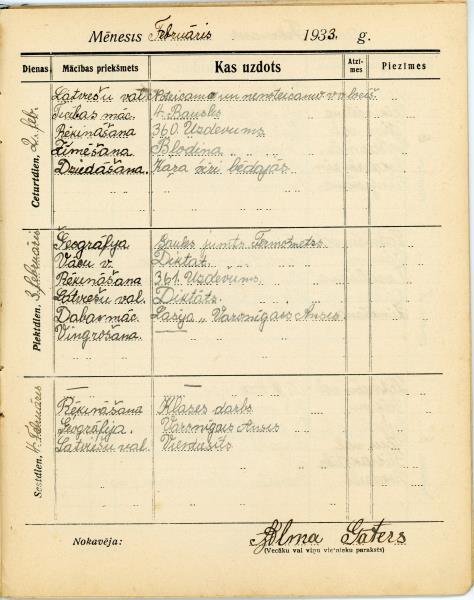 Mēnesis Februāris 1933. g.
Dienas Mācības priekšmets Kas uzdots Atzīmes Piezīmes
Ceturtdien, 2. feb.
Latvešu val. un
Ticības māc.
Rēķināšana 360. Uzdevums
Zīmēšana Blodiņa
Dziedāšana. Kara bēdājās
Piektdien, 3. februāris
Ģeogrāfija
Vācu v. Diktāt
Rēķināšana 361. Uzdevums
Latvešu val. Diktāts
Dabasmāc. Lasīja „ Varonīgais Ansis
Vingrošana. —
Sestdien, 4. Februāris
— —
Rēķināšana Klases darbs
Ģeogrāfija. Varonīgais Ansis
Latvešu val.
Nokavēja: Alma Gaters
(Vecāku vai viņu vietnieku paraksts)